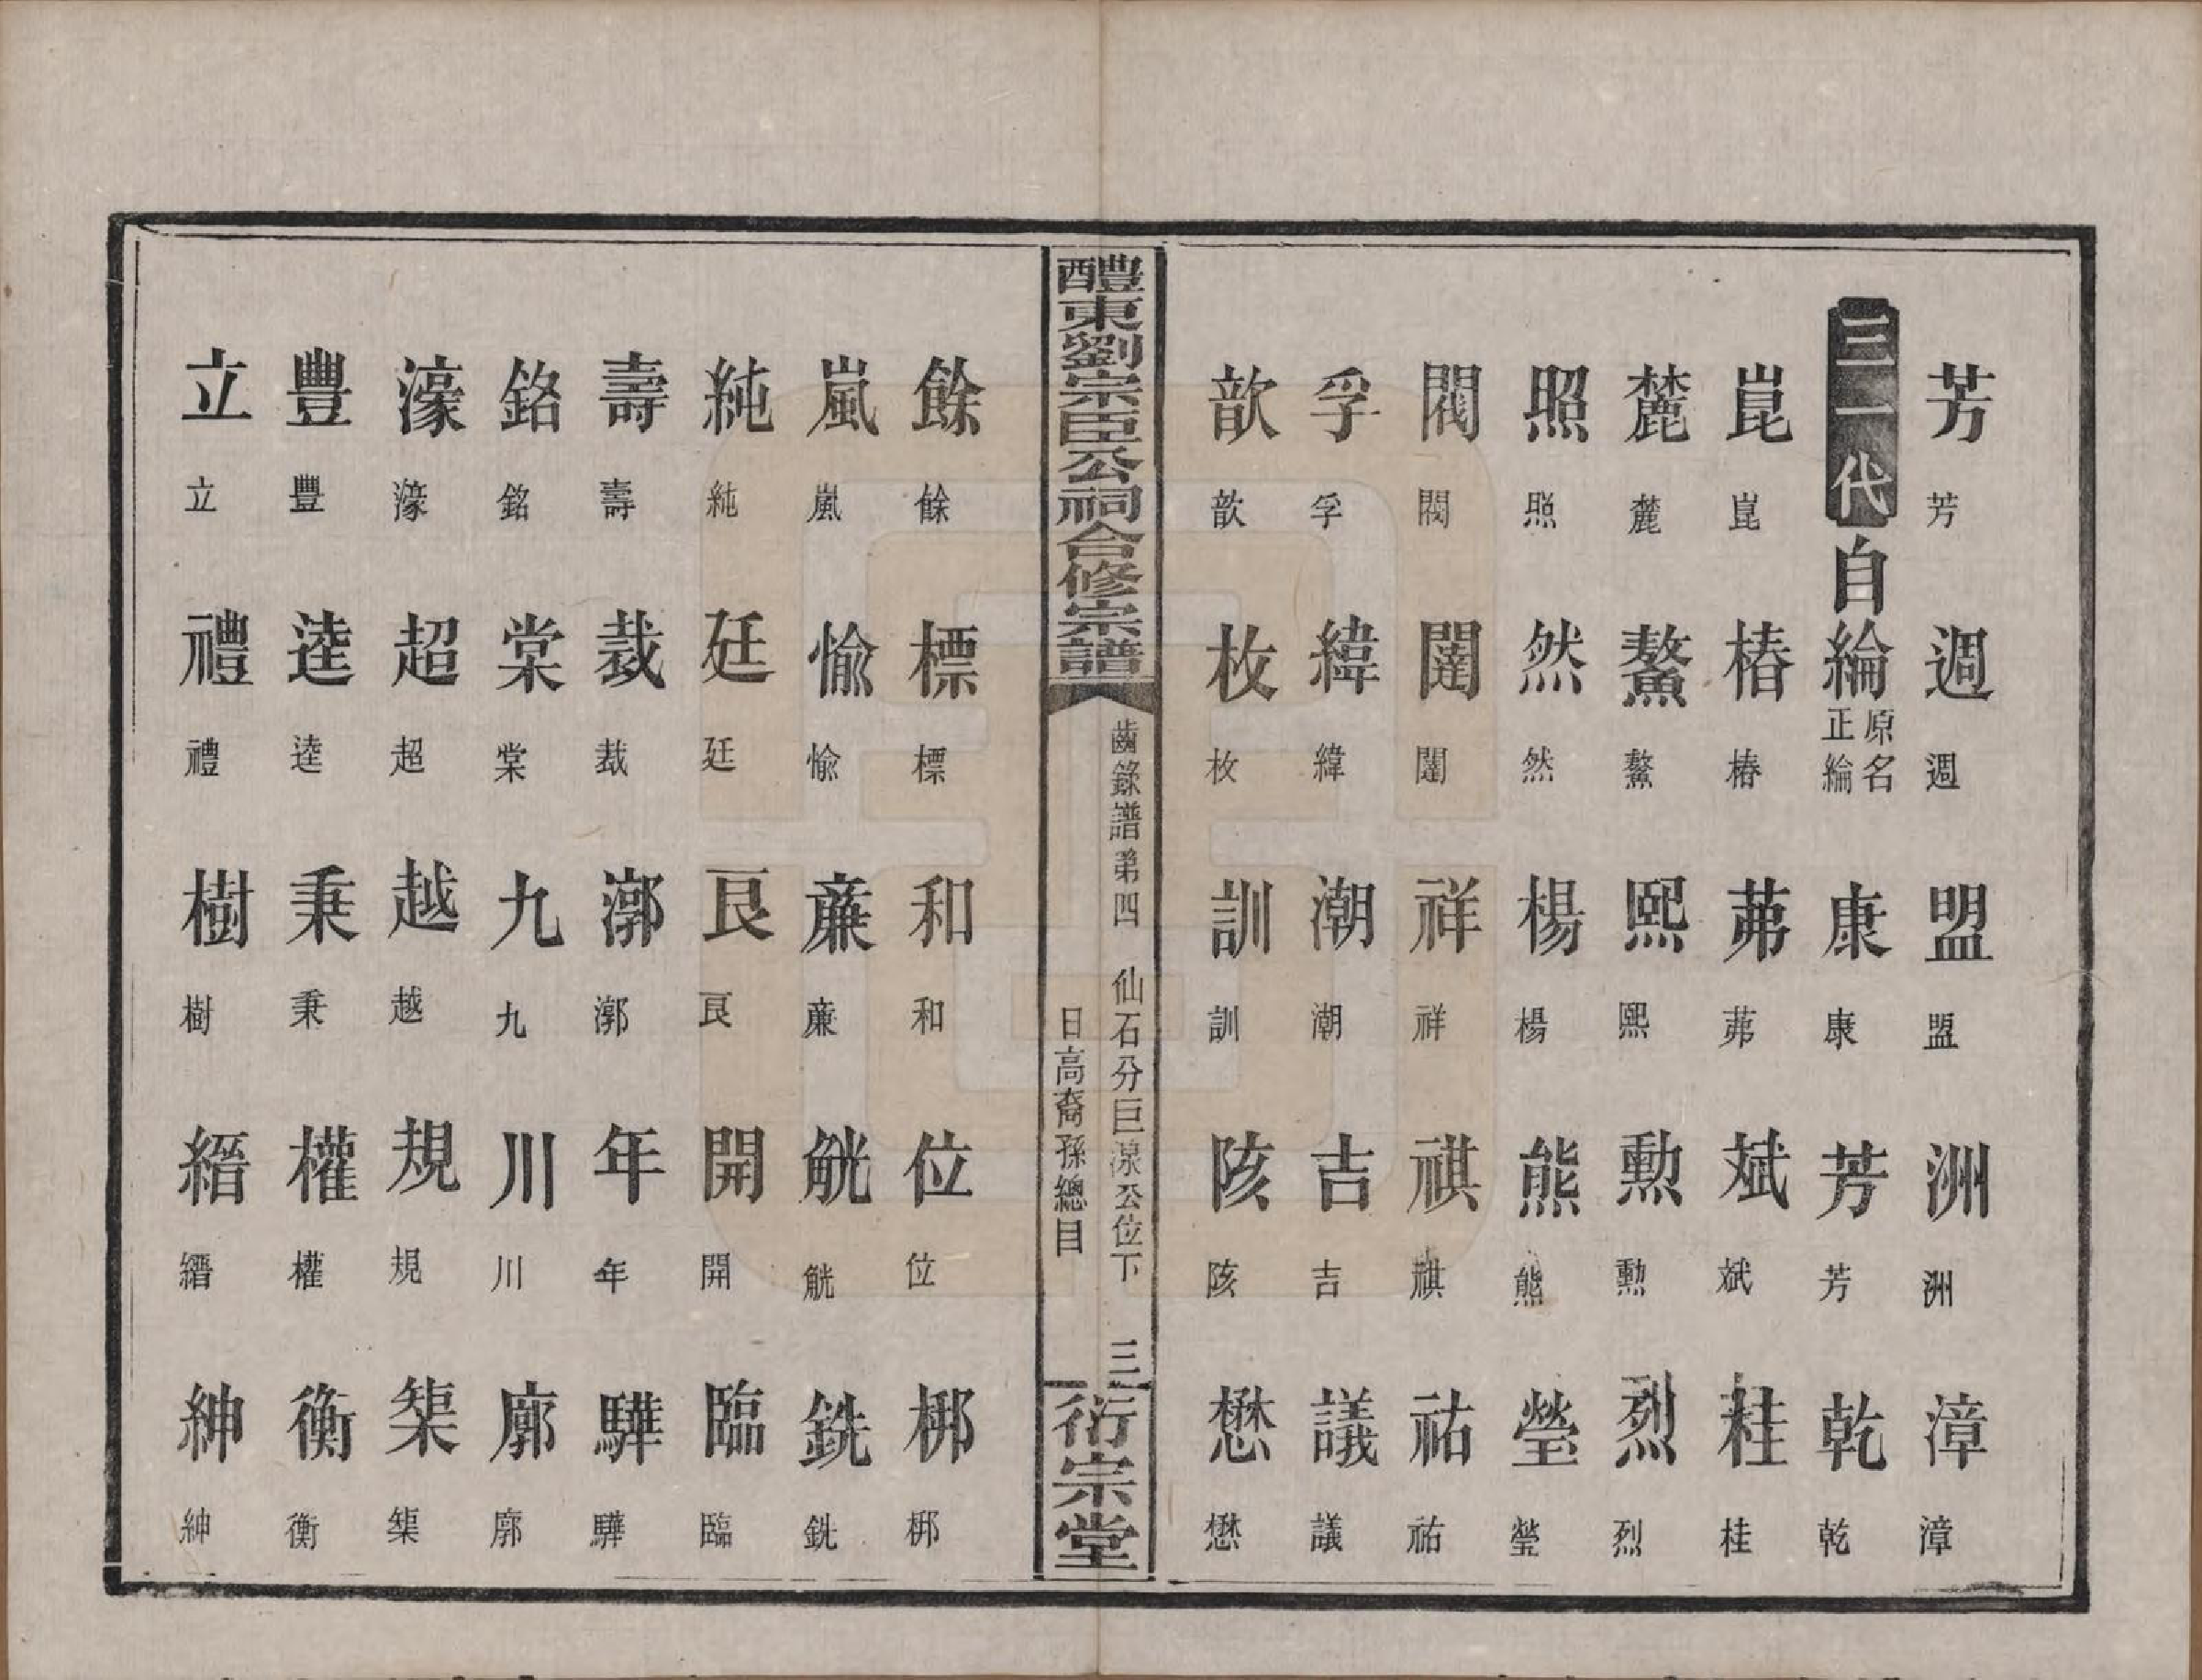 芳芳 週週 盟盟 洲洲 漳漳
三一代 自綸 原名正綸 康康 芳芳 乾乾
崑崑 椿椿 茀茀 斌斌 桂桂
麓麓 鰲鰲 熙熙 勲勲 烈烈
照照 然然 楊楊 熊熊 瑩瑩
閥閥 闥闥 祥祥 祺祺 祐祐
孚孚 緯緯 潮潮 吉吉 議議
歆歆 枚枚 訓訓 陔陔 懋懋
醴東劉宗臣公祠合修宗譜
齒錄譜第四 仙石分巨源公位下
日高裔孫總目
三
衍宗堂
餘餘 標標 和和 位位 梆梆
嵐嵐 愉愉 蔗 觥觥 銑銑
純純 廷廷 良良 開開 臨臨
壽壽 裁裁 漷漷 年年 驊驊
銘銘 棠棠 九九 川川 廓廓
濠濠 超超 越越 規規 榘榘
豐豐 逵逵 秉秉 權權 衡衡
立立 禮禮 樹樹 縉縉 紳紳